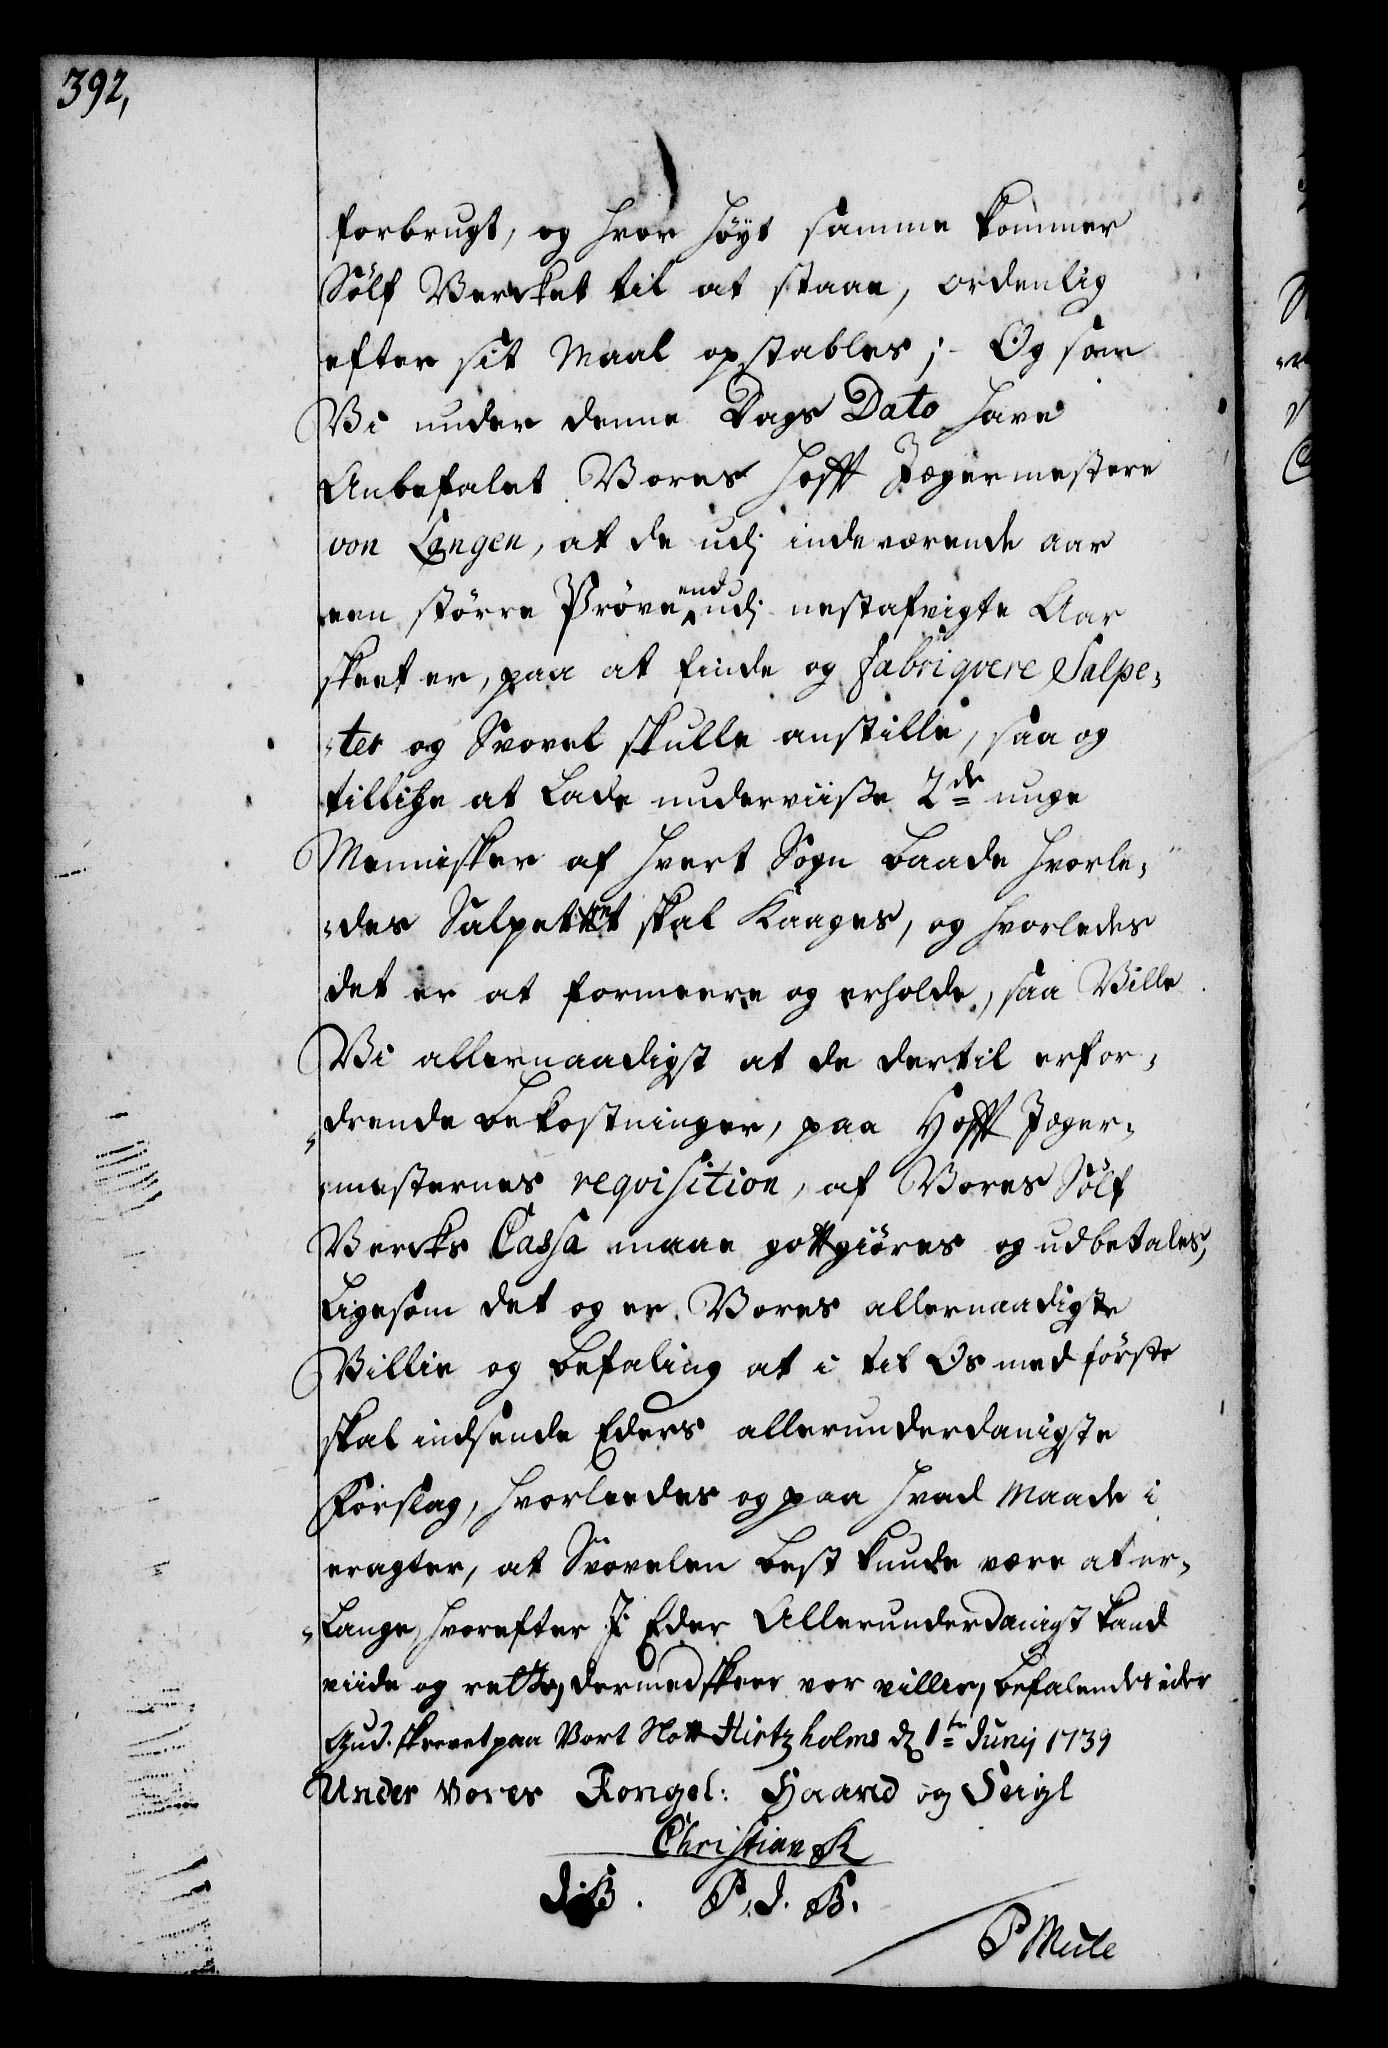 392,
forbrugt, og hvor høyt samme kommer
Sølf Vercket til at staae, ordentlig
efter sit Maal opstables; - Og som
Vi under denne Dags Dato have
Anbefalet Vores Hoff Jægermestere
von Langen, at de udj indeværende aar
een større Prøve end udj nestafvigte Aar
skeet er, paa at finde og fabriqvere Salpe-
-ter og Svovel skulle anstille, saa og
tillige at lade underviiße 2de unge
Mennisker af hvert Sogn baade hvorle-
-des Salpetret skal Kaages, og hvorledes
det er at formeere og erholde, saa Ville
Vi allernaadigst at de dertil erfor-
-drende bekostninger, paa Hoff Jæger-
mesternes reqvisition, af Vores Sølf
Vercks Cassa maae gottgiøres og udbetales,
Ligesom det og er Vores allernaadigste
Villie og befaling at i til Os med første
skal indsende Eders allerunderdanigste
Forslag, hvorleedes og paa hvad Maade i
eragter, at Svovelen best kunde være at er-
-lange, hvorefter I Eder Allerunderdanigst kand
viide og rette, dermed skeer vor villie, befalendes eder
Gud. skrevet paa Vort Slott Hirtzholms d 1te Junij 1739
Under Vores Kongel: Haand og Seigl
Christian R
P. J. B.
P Mule